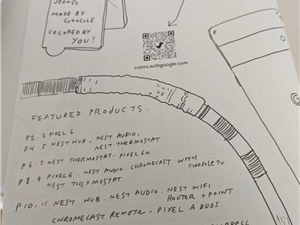 MADE BY
GOOGLE
COLORED BY
YOU!
colors.withgoogle.com
FEATURED PRODUCTS.
P2-3 PIXEL 6
P4-5 NEST HUB. NEST AUDIO.
NEST THERMOSTAT
P6-7 NEST THERMOSTAT. PIXEL 6a
P8-9 PIXEL 6. NEST AUDIO. CHROMECAST WITH
GOOGLE TV
NEST THERMOSTAT
P10-11 NEST HUB. NEST AUDIO. NEST WIFI
ROUTER + POINT
CHROMECAST REMOTE. PIXEL A BUDS.